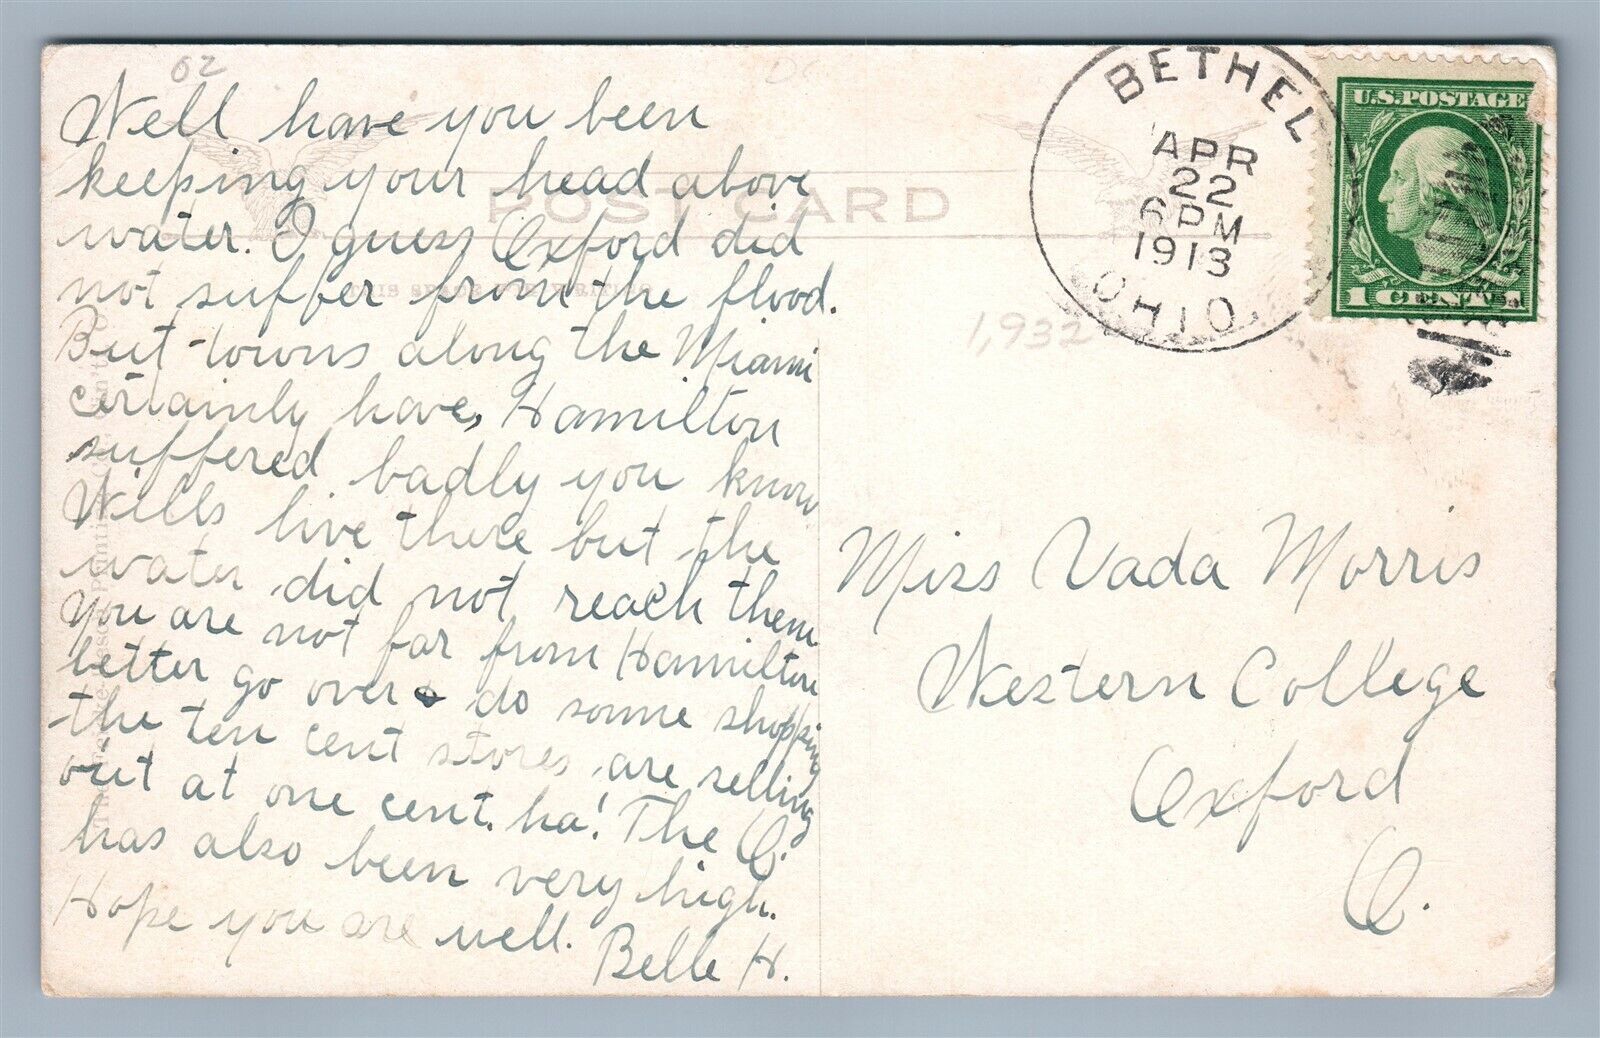 02
Well have you been
keeping your head above
water. I guess Oxford did
not suffer from the flood.
But towns along the Miami
certainly have, Hamilton
suffered badly you know
Wills live there but the
water did not reach them
You are not far from Hamilton
better go over & do some shopping
the ten cent stores are selling
out at one cent. ha! The O.
has also been very high.
Hope you are well.
Belle H.
POST CARD
THIS SPACE FOR WRITING
BETHEL
APR
22
6 PM
1913
OHIO
U.S. POSTAGE
1 CENT 1
1,932
Miss Vada Morris
Western College
Oxford
O.